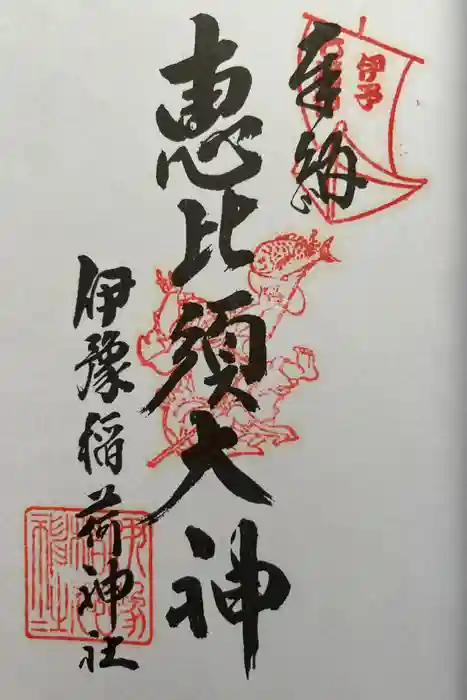 奉納
伊予
恵比須大神
伊豫稲荷神社